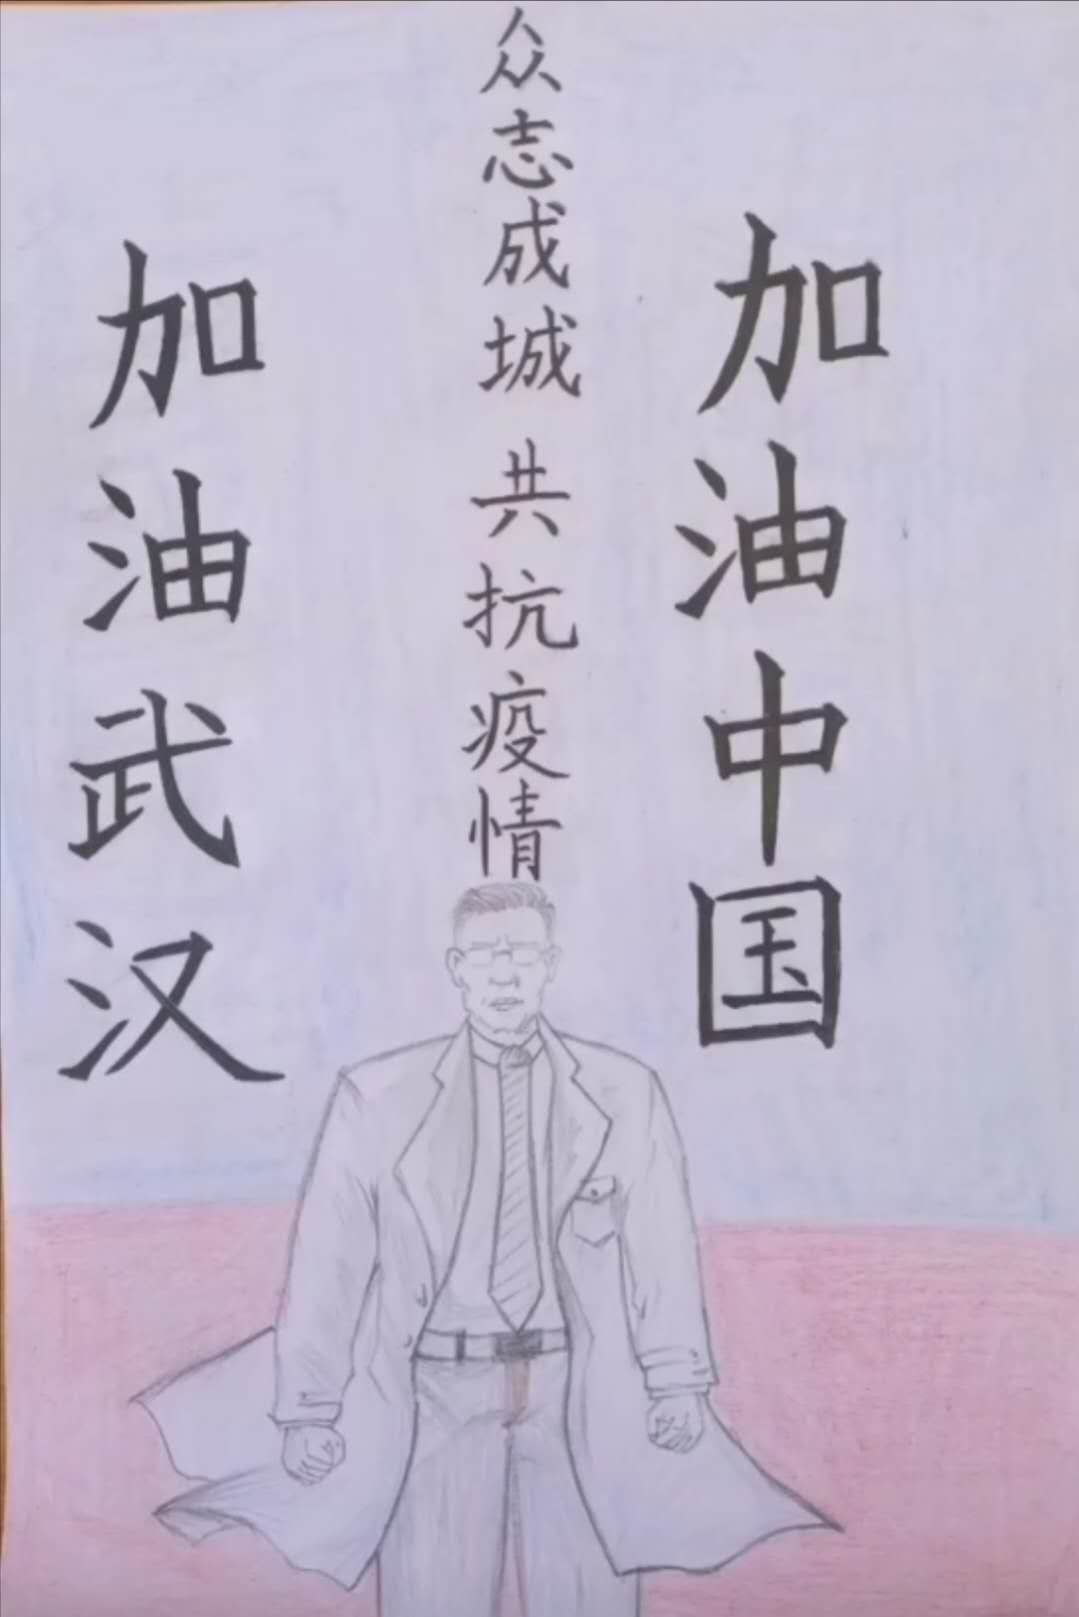 众志成城 共抗疫情
加油武汉
加油中国